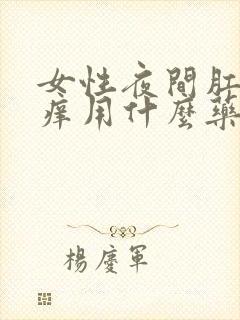 女性夜間肛
痒用什麼藥
楊慶軍